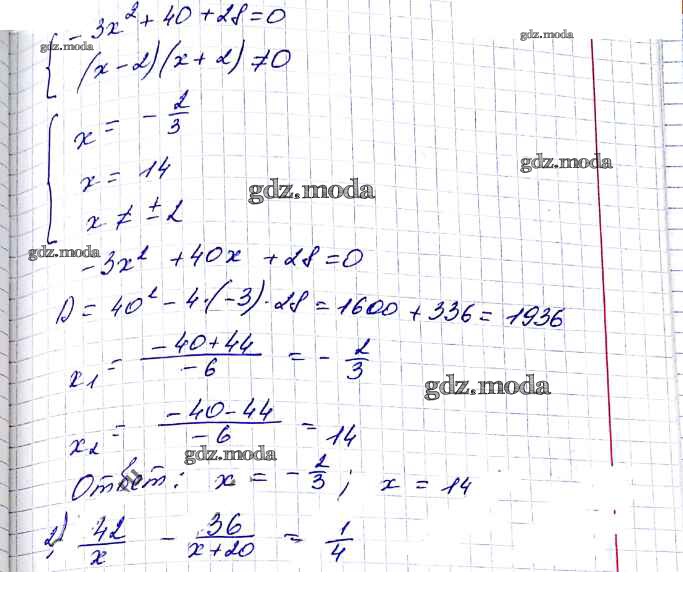 { -3x² + 40 + 28 = 0
gdz.moda gdz.moda
(x - 2)(x + 2) ≠ 0
{ x = - 2/3
x = 14
gdz.moda
gdz.moda
x ≠ ± 2
gdz.moda
-3x² + 40x + 28 = 0
D = 40² - 4·(-3)·28 = 1600 + 336 = 1936
x₁ = (-40+44)/(-6) = - 2/3
gdz.moda
x₂ = (-40-44)/(-6) = 14
gdz.moda
Ответ: x = - 2/3 ; x = 14
2) 42/x - 36/(x+20) = 1/4